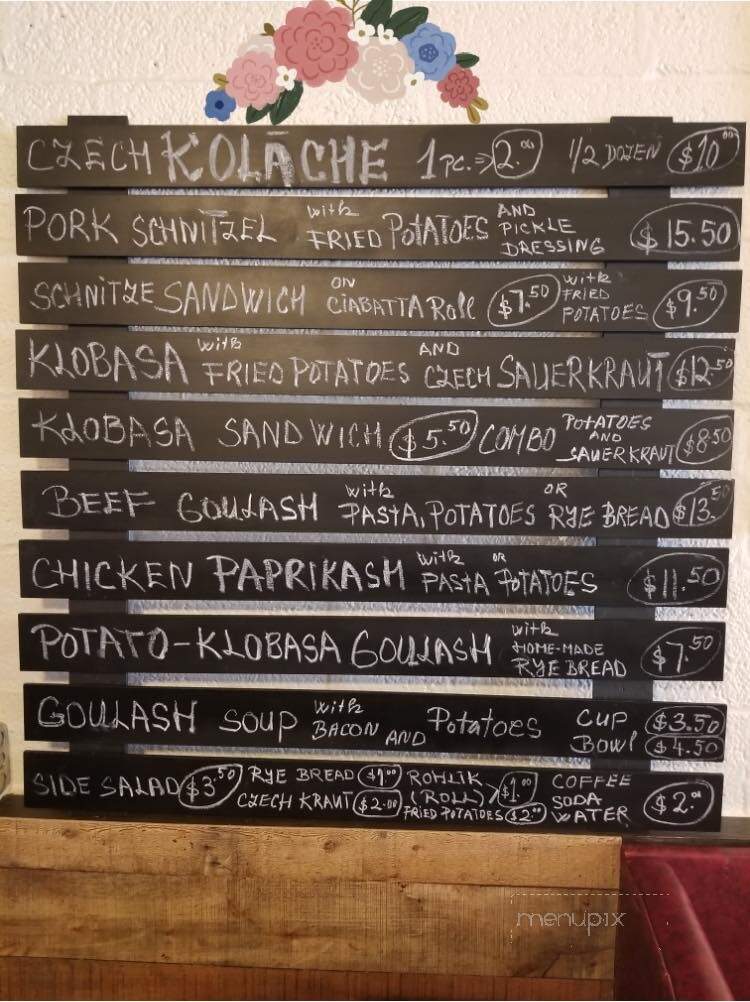 CZECH KOLĀCHE 1 PC. => 2.00 1/2 DOZEN $10.00
PORK SCHNITZEL with FRIED POTATOES AND PICKLE DRESSING $15.50
SCHNITZE SANDWICH ON CIABATTA Roll $7.50 with FRIED POTATOES $9.50
KLOBASA with FRIED POTATOES AND CZECH SAUERKRAUT $12.50
KLOBASA SANDWICH $5.50 COMBO POTATOES AND SAUERKRAUT $8.50
BEEF GOULASH with PASTA, POTATOES OR RYE BREAD $13.50
CHICKEN PAPRIKASH with PASTA OR POTATOES $11.50
POTATO-KLOBASA GOULASH with HOME-MADE RYE BREAD $7.50
GOULASH SOUP with BACON AND Potatoes CUP $3.50
BOWl $4.50
SIDE SALAD $3.50 RYE BREAD $1.00 ROHLIK (ROLL) $1.00 COFFEE SODA WATER $2.00
CZECH KRAUT $2.00 FRIED POTATOES $2.00
menupix